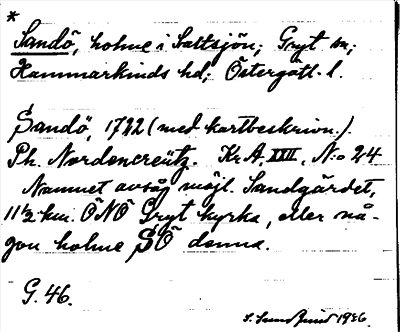 *
Sandö, holme i Saltsjön; Gryt sn;
Hammarkinds hd; Östergötl. l.
Sandö, 1722 (med kartbeskrivn.).
Ph. Nordencreütz. Kr.A. XXII, N:o 24
Namnet avsåg möjl. Sandgärdet,
11½ km. ÖNÖ Gryt kyrka, eller nå-
gon holme SÖ denna.
G. 46.
1936